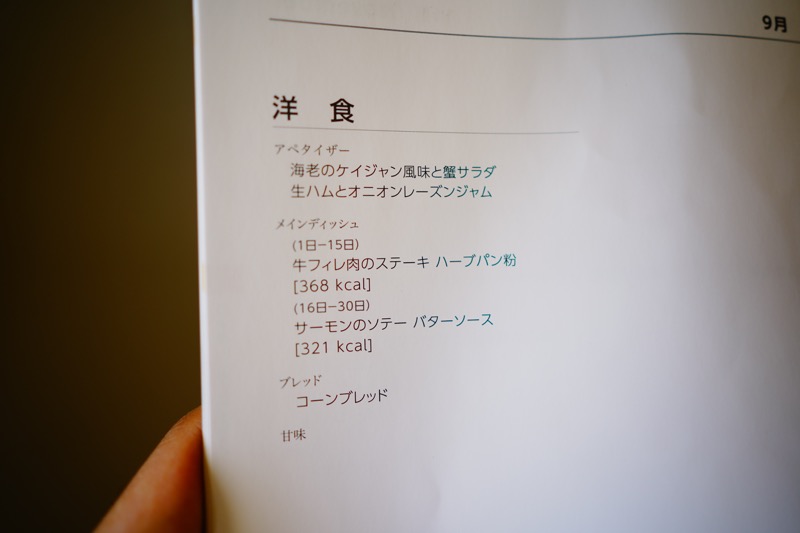 9月
洋 食
アペタイザー
海老のケイジャン風味と蟹サラダ
生ハムとオニオンレーズンジャム
メインディッシュ
(1日−15日)
牛フィレ肉のステーキ ハーブパン粉
[368 kcal]
(16日−30日)
サーモンのソテー バターソース
[321 kcal]
ブレッド
コーンブレッド
甘味